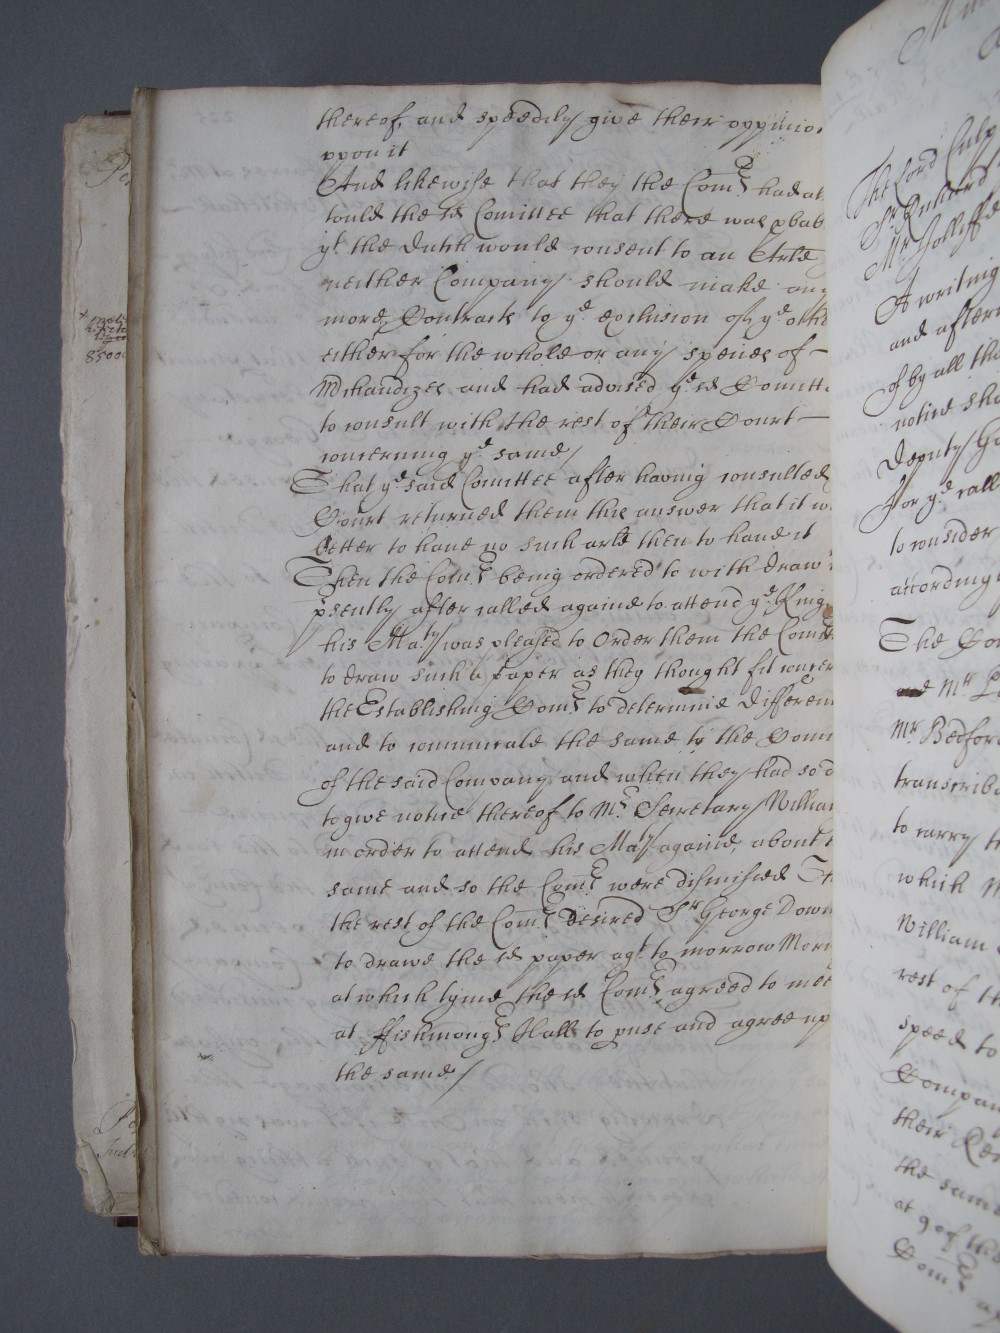 thereof, and speedily give their oppinio
vpon it
And likewise that they the Com:rs had at
tould the sd Comittee that there was pbab
yt the Dutch would consent to an Arle
neither Company should make any
more Contracts to ye exclusion of ye othe
either for the whole or any species of
Mchandizes and had advised ye sd Comitte
to consult with the rest of their Court
concerning ye same/
That ye said Comittee after having consulted
Court returned them this answer that it w
better to haue no such arle then to haue it
Then the Com:rs being ordered to with draw
psently after called againe to attend ye King
his Maty was pleased to Order them the Com:rs
to draw such a paper as they thought fit concer
the Establishing Com:rs to determine differen
and to comunicate the same to the Comi
of the said Company and when they had so d
to give notice thereof to Mr Secretary William
in order to attend his Maty againe, about t
same and so the Com:rs were dismissed Th
the rest of the Com:rs desired Sr George Down
to drawe the sd paper agt to morrow Morn
at which tyme the sd Com:rs agreed to mee
at ffishmongrs Hall to pvse and agree up
the same/
85000
The Lord Culp
Sr Richard
Mr Jolliffe
A writing
and aftern
of by all the
notice sha
Deputy Go
for ye call
to consider
according
The Co
Mr
Mr Bedford
transcribe
to carry th
which M
William
rest of th
speed to
Company
their
the same
at 9 of the
Com:rs